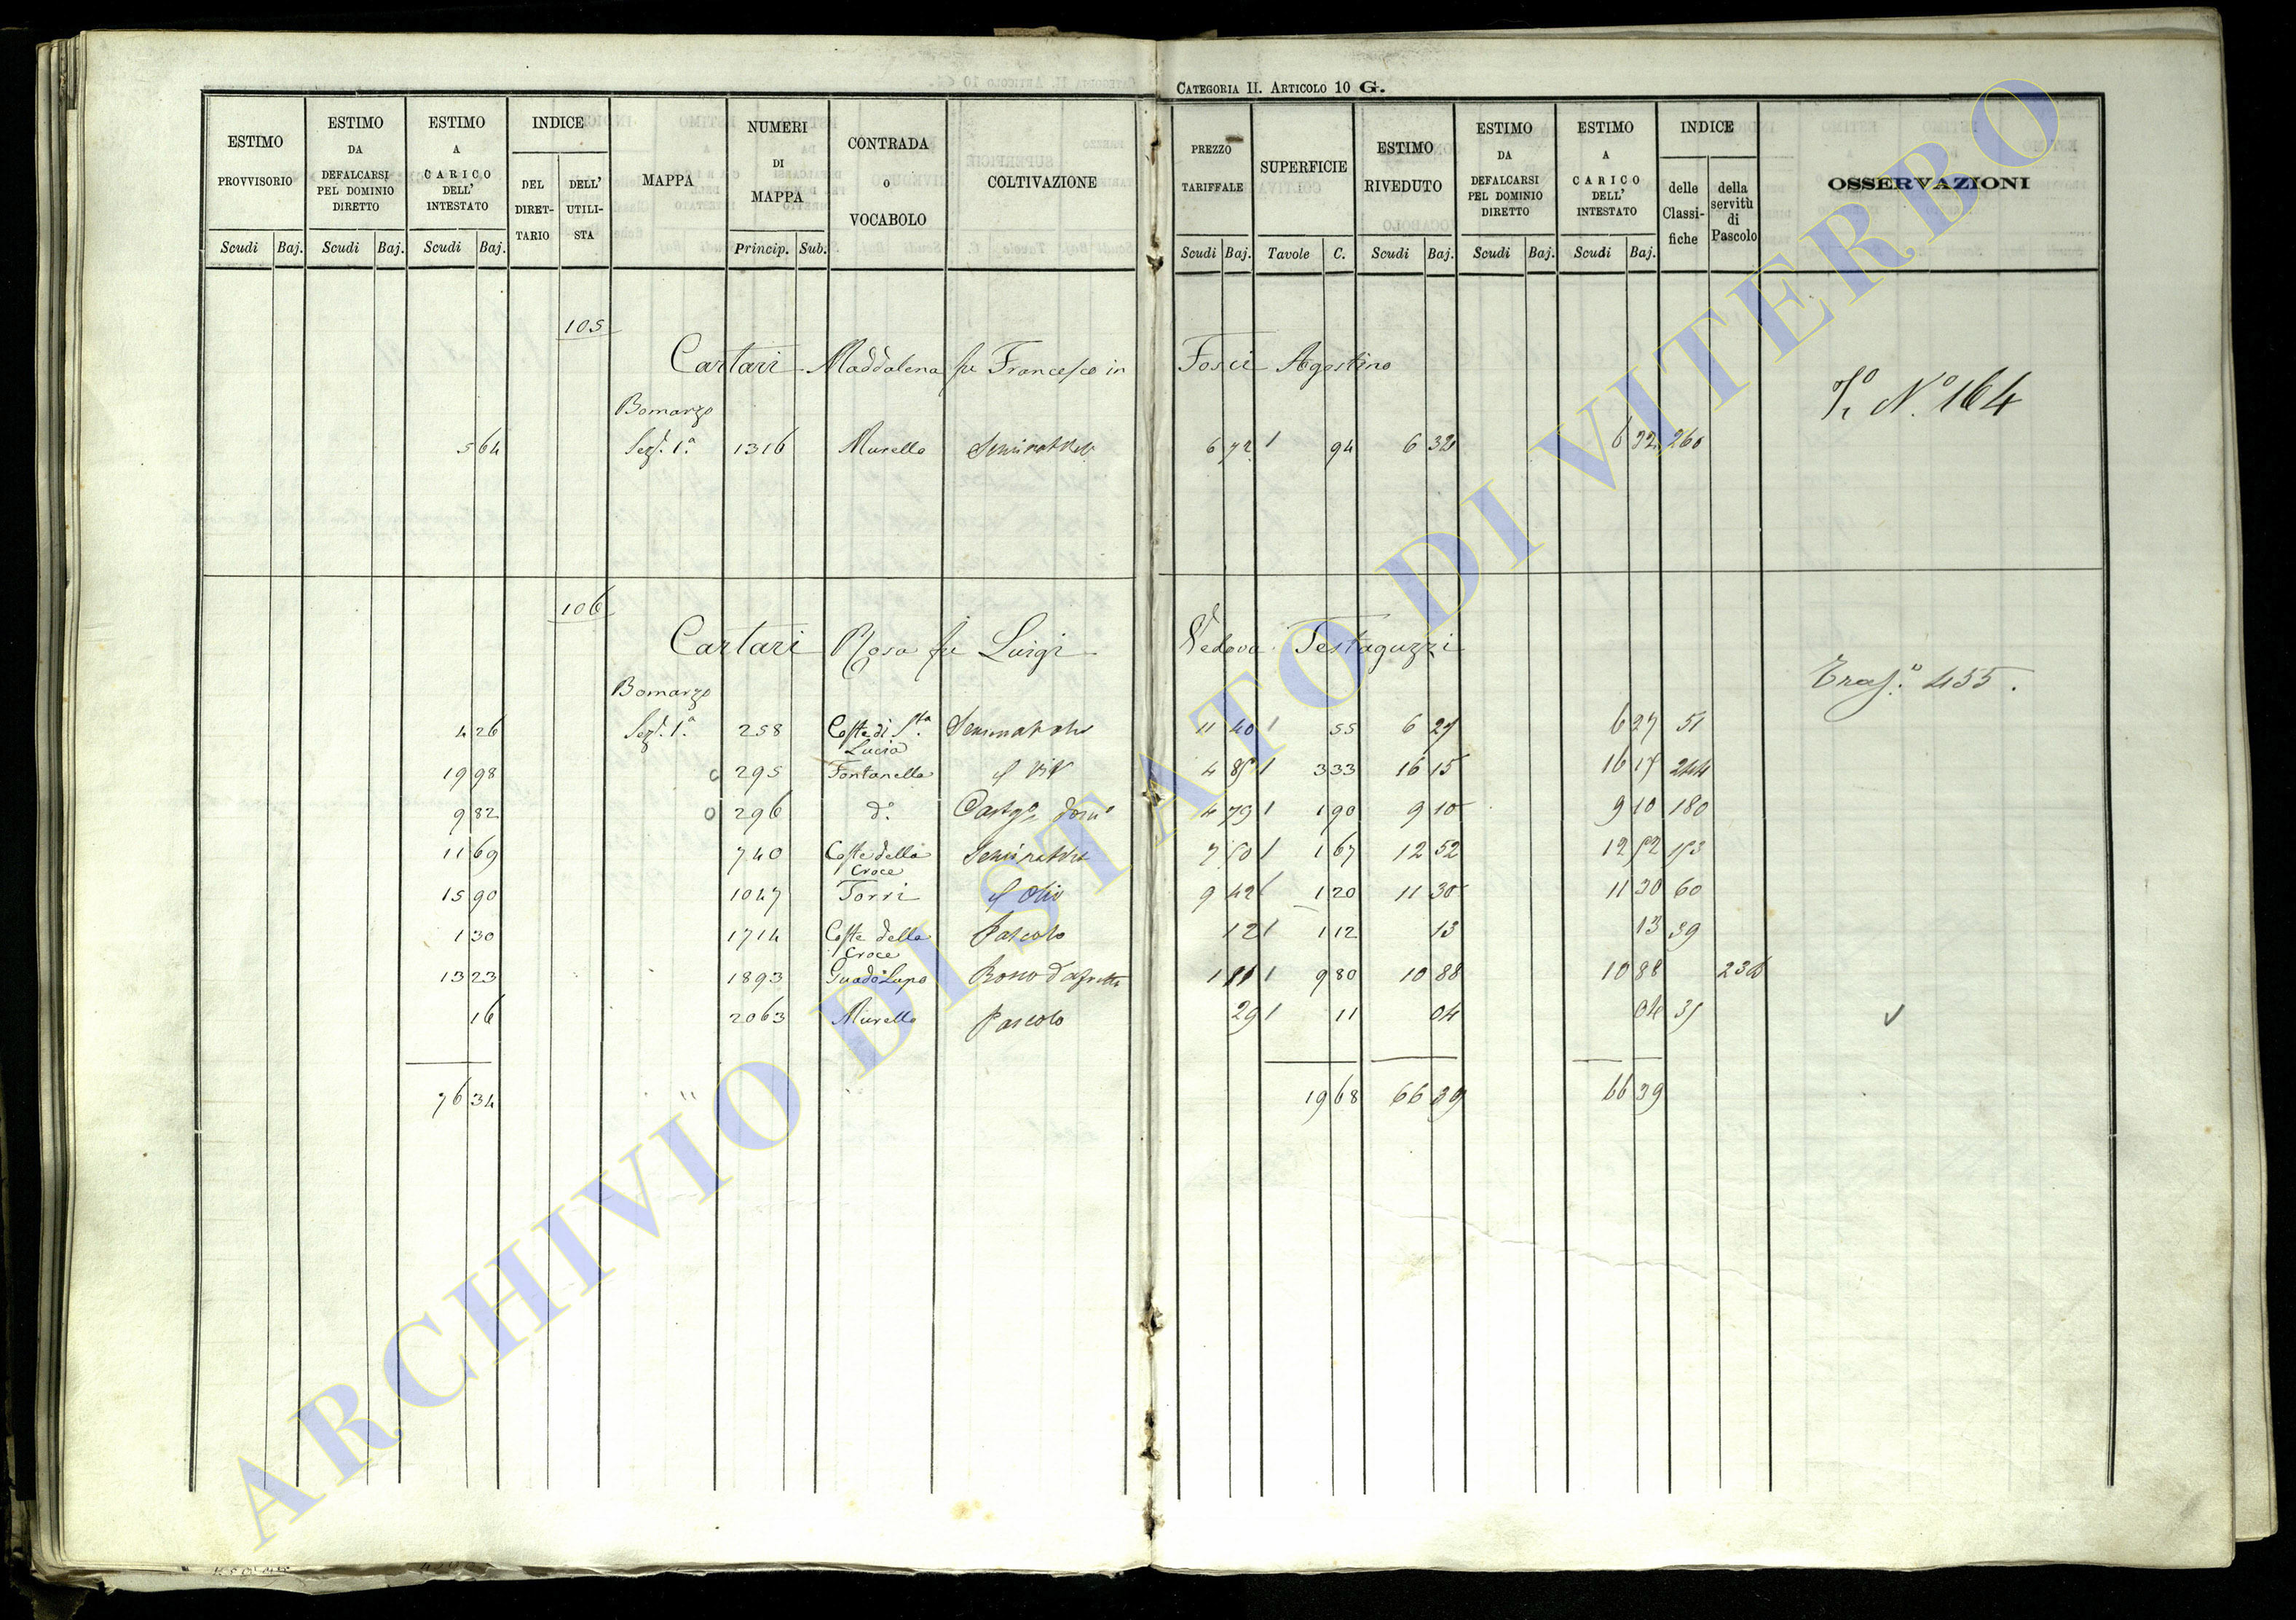 CATEGORIA II. ARTICOLO 10 G.
ESTIMO PROVVISORIO | ESTIMO DA DEFALCARSI PEL DOMINIO DIRETTO | ESTIMO A CARICO DELL' INTESTATO | INDICE | MAPPA | NUMERI DI MAPPA | CONTRADA O VOCABOLO | COLTIVAZIONE | PREZZO TARIFFALE | SUPERFICIE | ESTIMO RIVEDUTO | ESTIMO DA DEFALCARSI PEL DOMINIO DIRETTO | ESTIMO A CARICO DELL' INTESTATO | INDICE | OSSERVAZIONI
DEL DIRETTARIO | DELL' UTILISTA | delle Classifiche | della servitù di Pascolo
Scudi | Baj. | Scudi | Baj. | Scudi | Baj. | Princip. | Sub. | Scudi | Baj. | Tavole | C. | Scudi | Baj. | Scudi | Baj. | Scudi | Baj.
105
Cartari Maddalena fu Francesco in Fosci Agostino
Nº 164
Bomarzo
5 64 | Sez. 1ª | 1316 | Murello | 6 72 | 94 | 6 32 | 6 32 | 260
106
Cartari Rosa fu Luigi Vedova Testaguzzi
455.
Bomarzo
4 26 | Sez. 1ª | 258 | Coste di Sta Lucia | 11 40 | 55 | 6 27 | 6 27 | 51
19 98 | 295 | Fontanella | 4 85 | 3 33 | 16 15 | 16 15 | 244
9 82 | 296 | dº | 4 79 | 1 90 | 9 10 | 9 10 | 180
11 69 | 740 | Coste della Croce | 7 50 | 1 67 | 12 52 | 12 52 | 153
15 90 | 1047 | Torri | 9 42 | 1 20 | 11 30 | 11 30 | 60
1 30 | 1714 | Coste della Croce | Pascolo | 12 | 1 12 | 13 | 13 | 39
13 23 | 1893 | Guado Lupo | 1 11 | 9 80 | 10 88 | 10 88
16 | 2063 | Murello | Pascolo | 29 | 11 | 04 | 04
76 34 | 19 68 | 66 39 | 66 39
ARCHIVIO DI STATO DI VITERBO